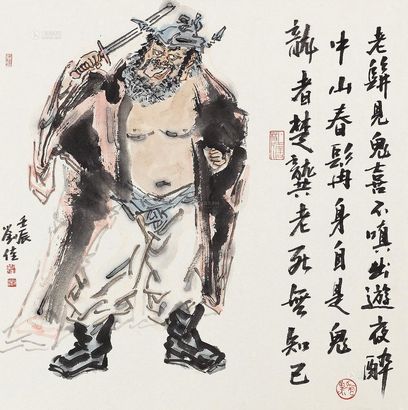 老髯見鬼喜不嗔出遊夜醉
中山春髯身自是鬼
辭者楚龔老死無知己
壬辰
劉佳